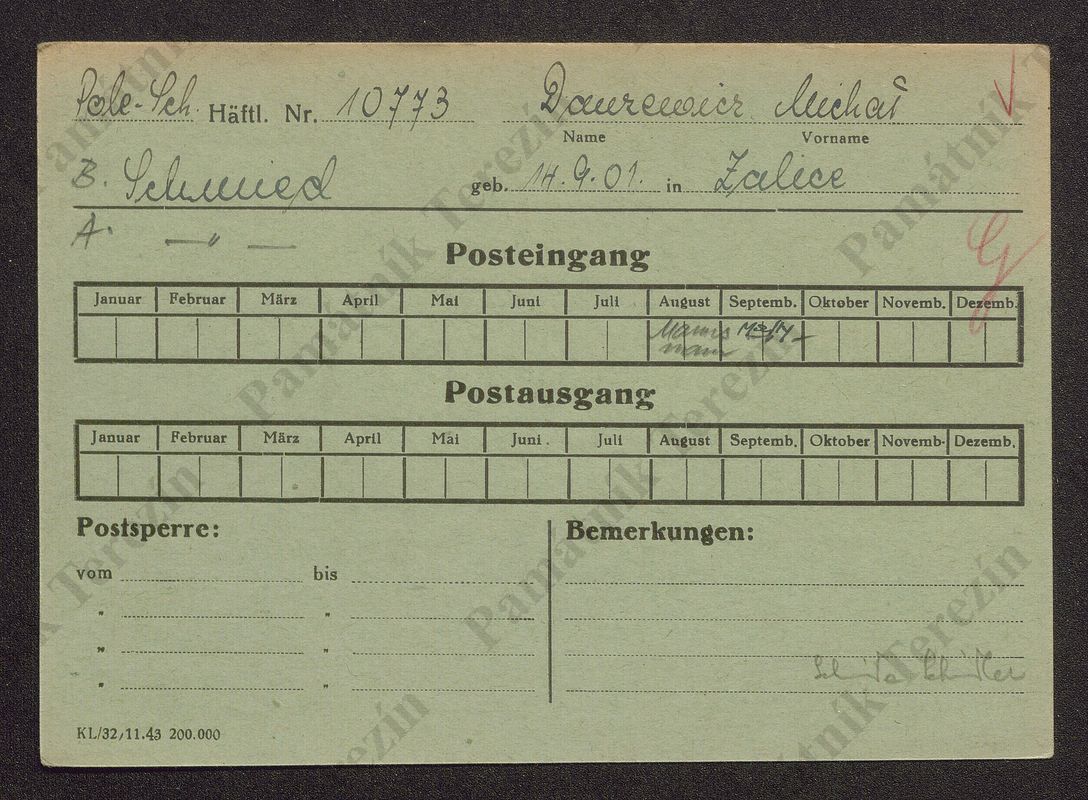 Pole-Sch. Häftl. Nr. 10773 Daurewicz Michał
Name Vorname
B. Schmied geb. 14.9.01. in Zalice
A. — " —
Posteingang
Januar Februar März April Mai Juni Juli August Septemb. Oktober Novemb. Dezemb.
Postausgang
Januar Februar März April Mai Juni. Juli August Septemb. Oktober Novemb- Dezemb.
Postsperre: Bemerkungen:
vom bis
" "
" "
" "
KL/32/11.43 200.000
Památník Terezín